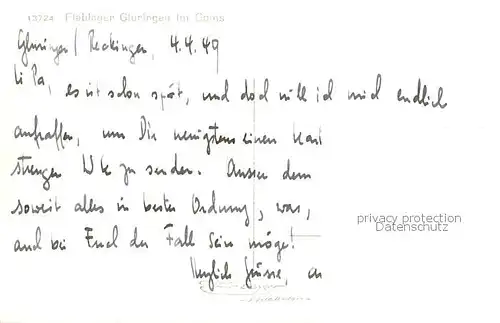 13724 Fieblager Gluringen im Goms
Gluringen / Reckingen, 4.4.49
Li Pa,
es ist schon spät, und doch will ich mich endlich
aufraffen, um Dir wenigstens einen
zu senden. Ausser dem
soweit alles in bester Ordnung, was,
auch bei Euch der Fall sein möge!
Herzlich Grüsse,
privacy protection
Datenschutz